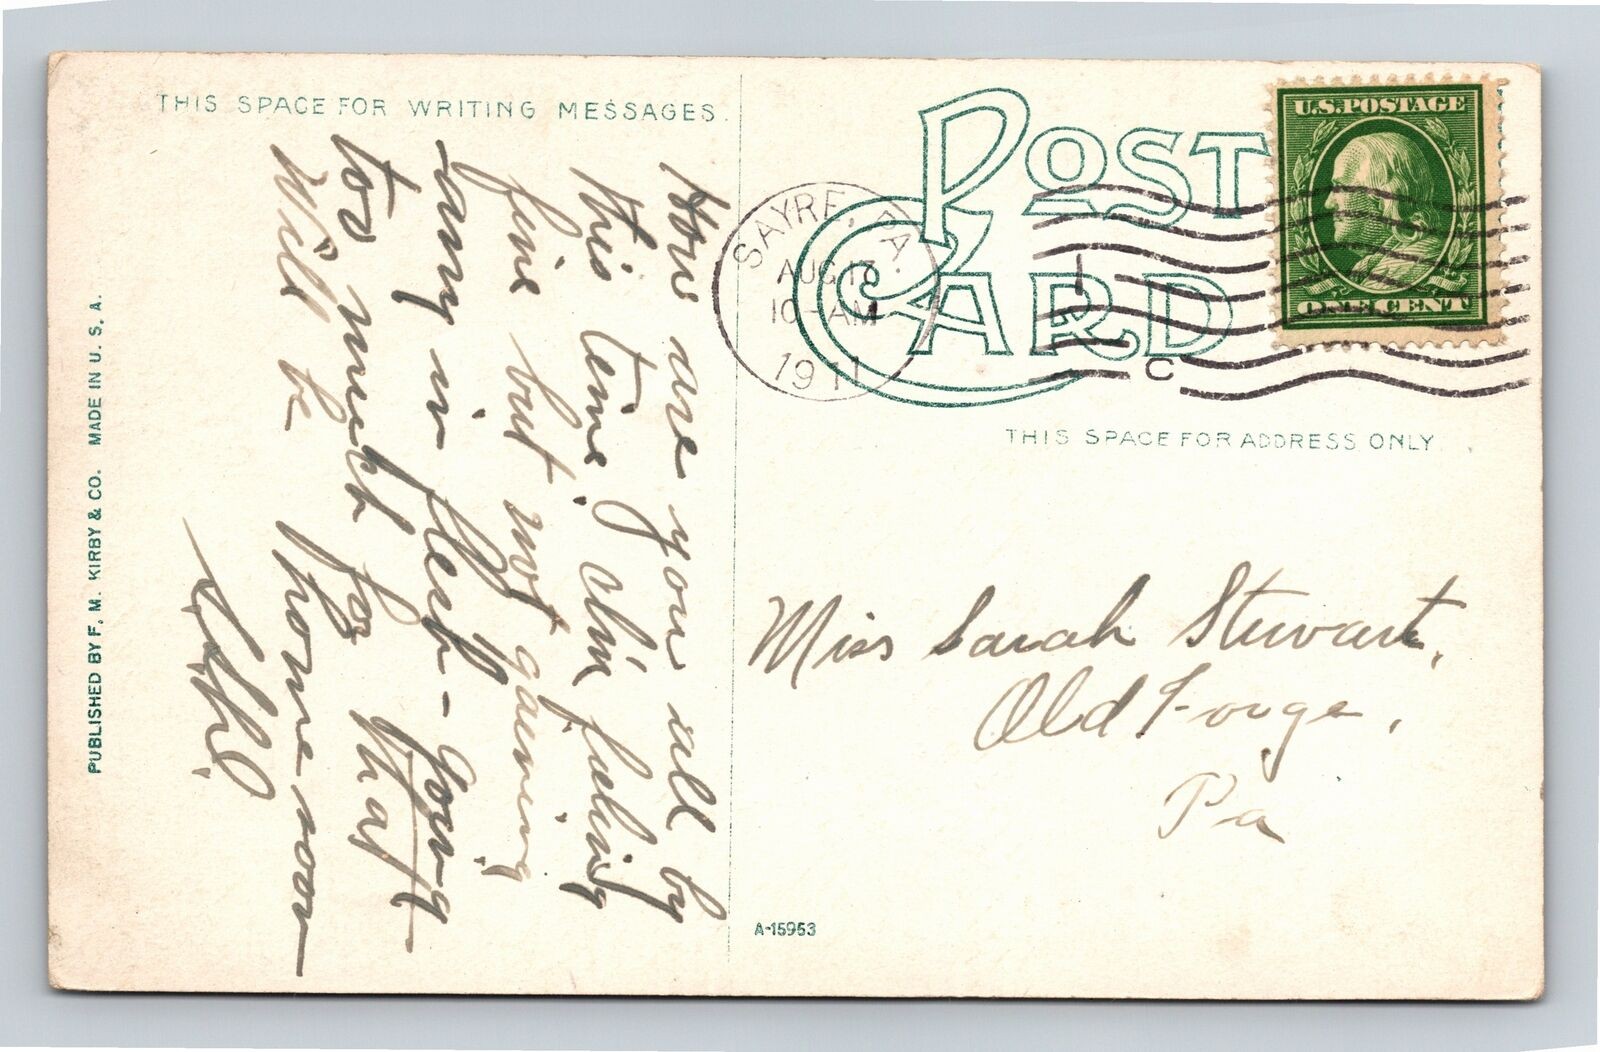 THIS SPACE FOR WRITING MESSAGES.
How are you all by
this time, I'm feeling
fine but not gaining
any in flesh - going
too much for that
Will be home soon
PUBLISHED BY F. M. KIRBY & CO. MADE IN U. S. A.
POST CARD
SAYRE, PA.
AUG 17
10-AM
1911
1
C
U.S. POSTAGE
ONE CENT
THIS SPACE FOR ADDRESS ONLY
Miss Sarah Stewart,
Old Forge,
Pa
A-15953